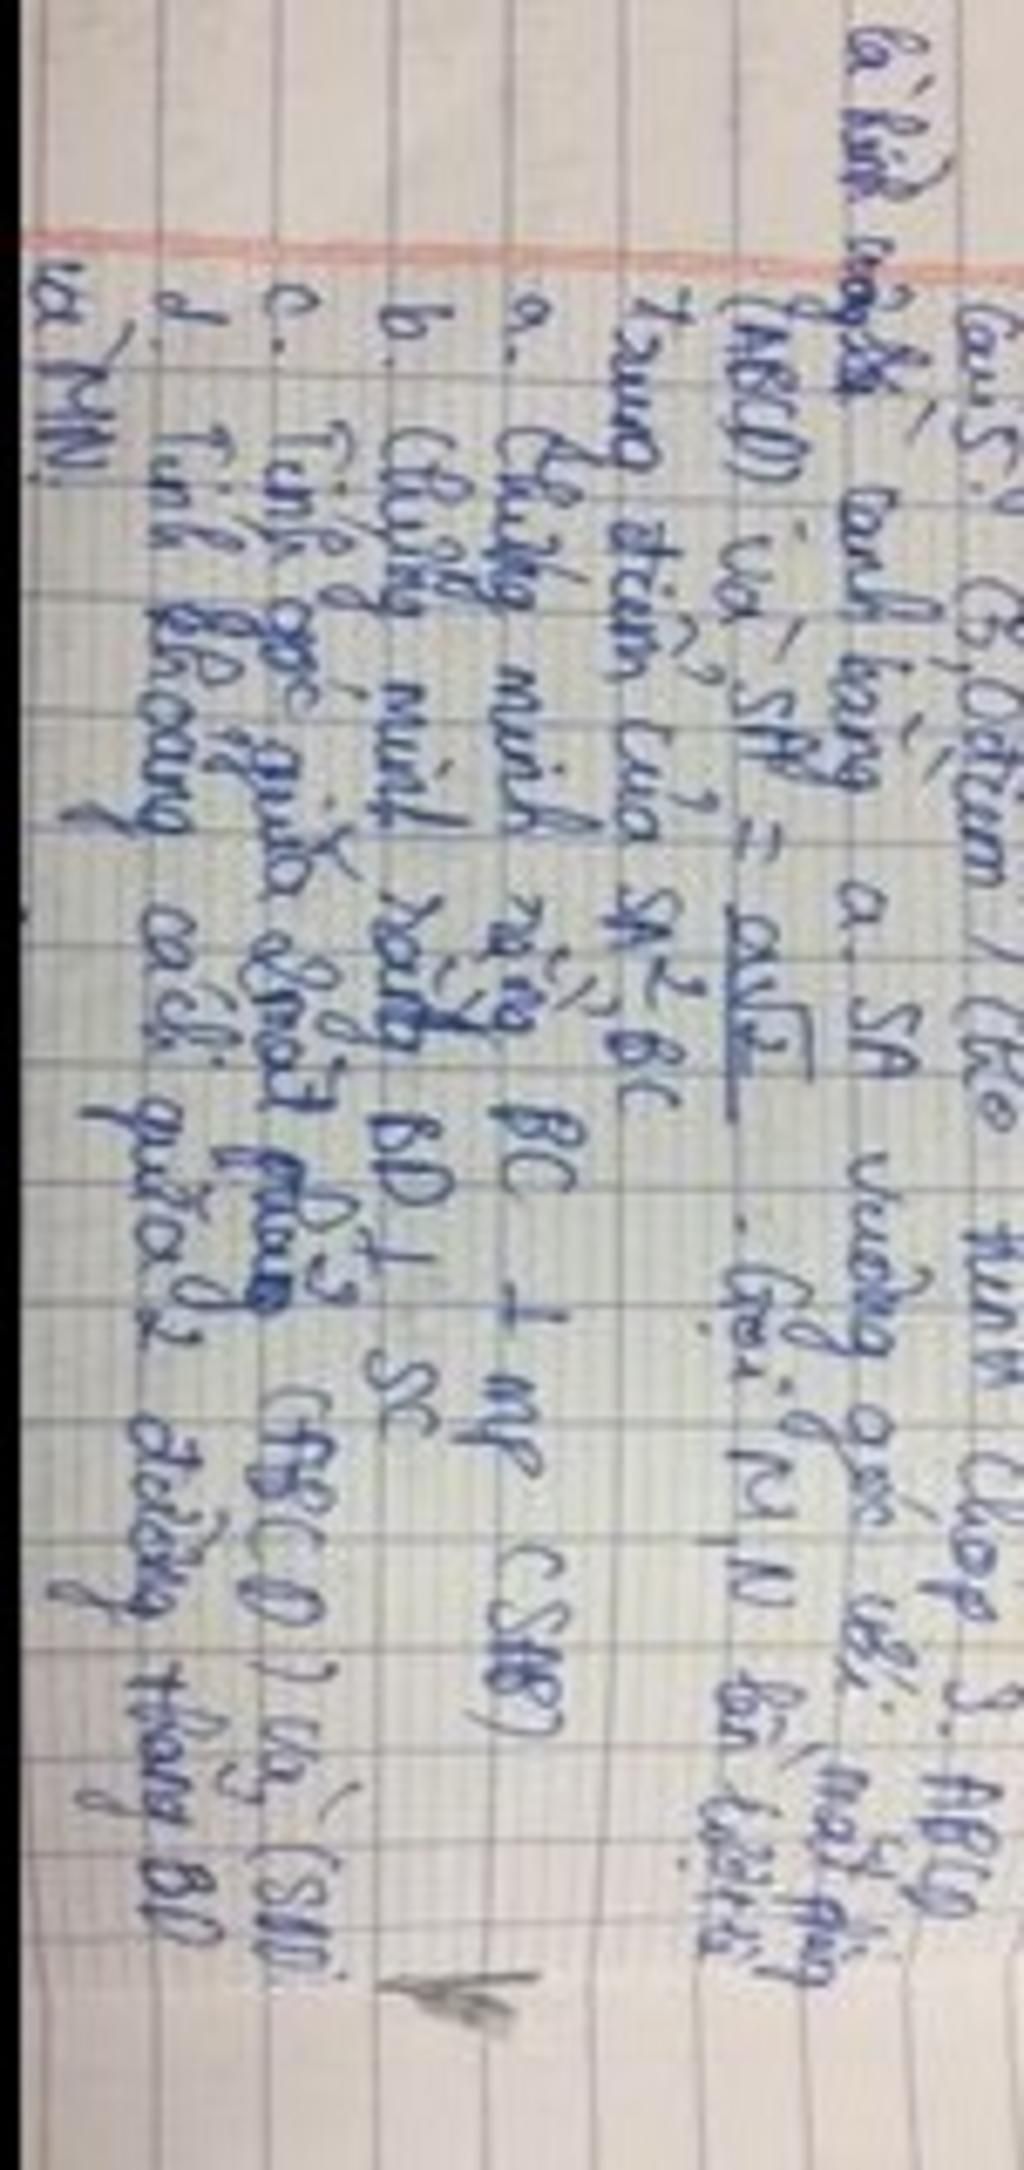 Câu 5: (3,0 điểm) Cho hình chóp S.ABCD
là hình vuông cạnh bằng a. SA vuông góc với mặt phẳng
(ABCD) và SA = a√2. Gọi M, N lần lượt là
trung điểm của SA và BC
a. Chứng minh rằng BC ⊥ mp (SAB)
b. Chứng minh rằng BD ⊥ SC
c. Tính góc giữa 2 mặt phẳng (ABCD) và
d. Tính khoảng cách giữa 2 đường thẳng BD
và MN.